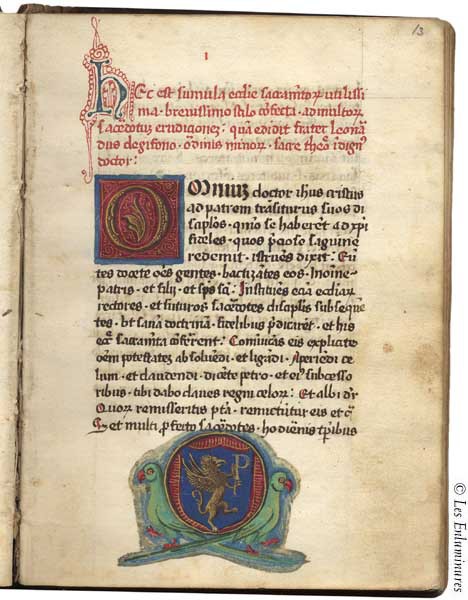 13
I
Hec est sumula ecclie sacramtoꝝ utilissi
ma · brevissimo stilo cõfecta · ad multoꝝ
sacerdotuz erudigonez : quã edidit frater leonã
dus de gifono · ordinis minoꝝ · sacre theo idign9
doctor :
Omniuz doctor ihus cristus
ad patrem trãsiturus suos di
sciplos · qmo se haberet ad xpi
fideles · quos pcioso sãguine
redemit · istruẽs dixit : Eũ
tes docete oẽs gentes · bactizãtes eos · Inomine
patris · et filij · et sps sci : Instituẽs eciã eccliaꝝ
rectores · et futuros sacerdotes discipulis subseque
tes · ut sana doctrina fidelibus pdicaret · et his
sacramta cõferent : explicate
oem potestates absoluedi · et ligandi · Aperiẽdi ce
lum · et claudendi · dicẽte petro · et eius subcesso
ribus · tibi dabo claues regni celoꝝ : Et alibi dr
Quoꝝ remisseritis pctã · remictũtur eis et cͣ
Et multi pfecto sacerdotes · hodiernis tpribus
P
© Les Enluminures